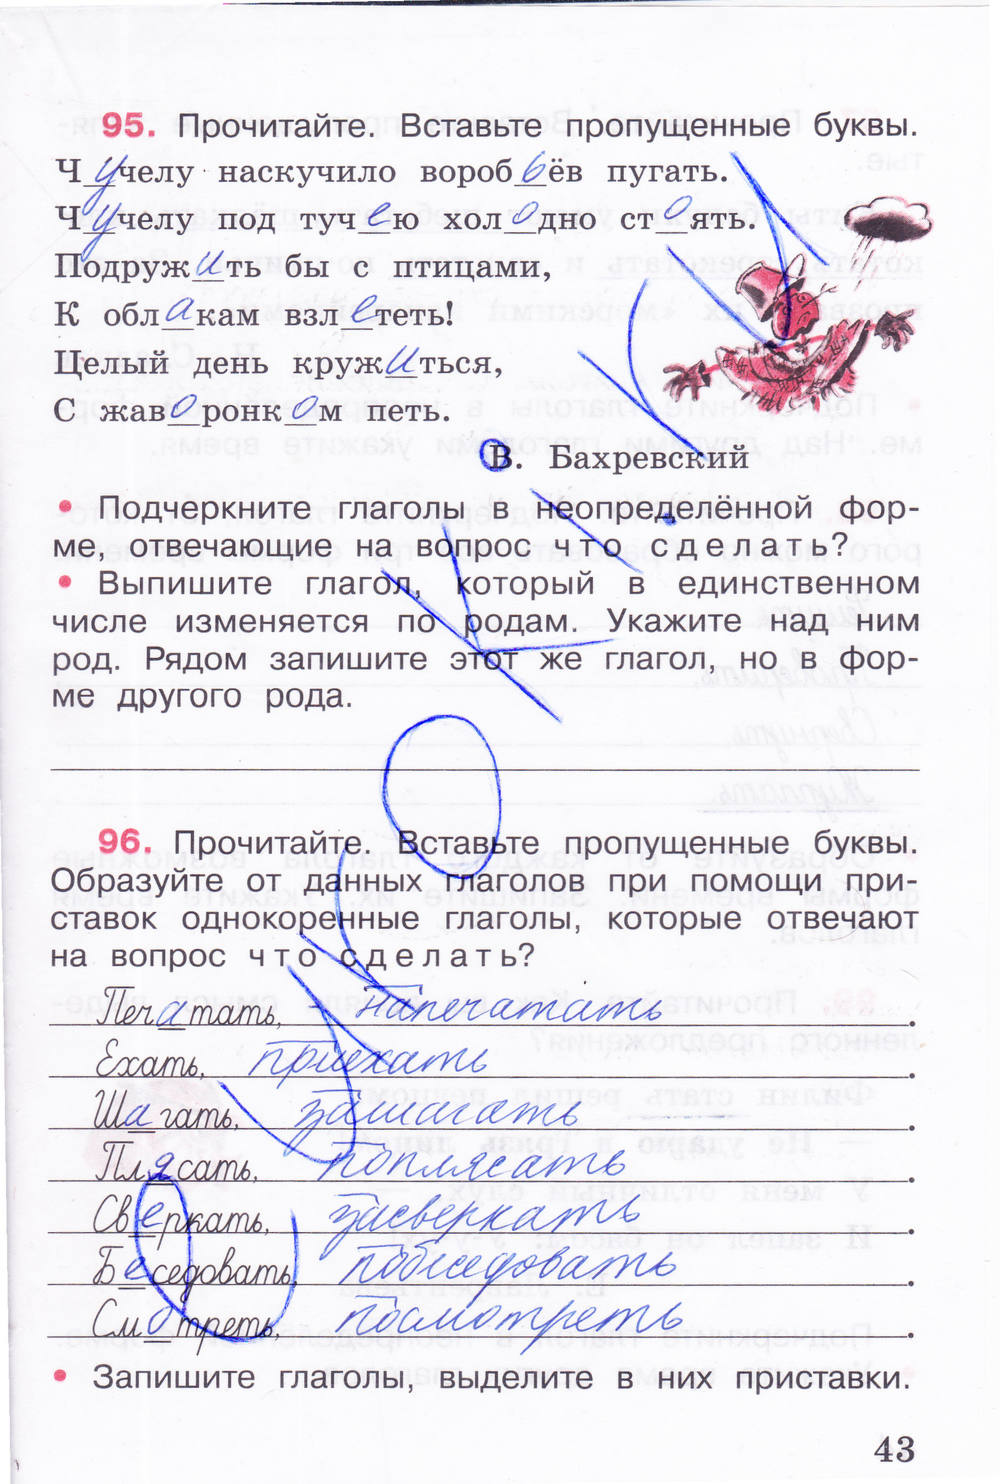 95. Прочитайте. Вставьте пропущенные буквы.
Чучелу наскучило воробьёв пугать.
Чучелу под тучею холодно стоять.
Подружить бы с птицами,
К облакам взлететь!
Целый день кружиться,
С жаворонком петь.
В. Бахревский
• Подчеркните глаголы в неопределённой фор-
ме, отвечающие на вопрос что сделать?
• Выпишите глагол, который в единственном
числе изменяется по родам. Укажите над ним
род. Рядом запишите этот же глагол, но в фор-
ме другого рода.
96. Прочитайте. Вставьте пропущенные буквы.
Образуйте от данных глаголов при помощи при-
ставок однокоренные глаголы, которые отвечают
на вопрос что сделать?
Печатать, напечатать.
Ехать, приехать.
Шагать, зашагать.
Плясать, поплясать.
Сверкать, засверкать.
Беседовать, побеседовать.
Смотреть, посмотреть.
• Запишите глаголы, выделите в них приставки.
43